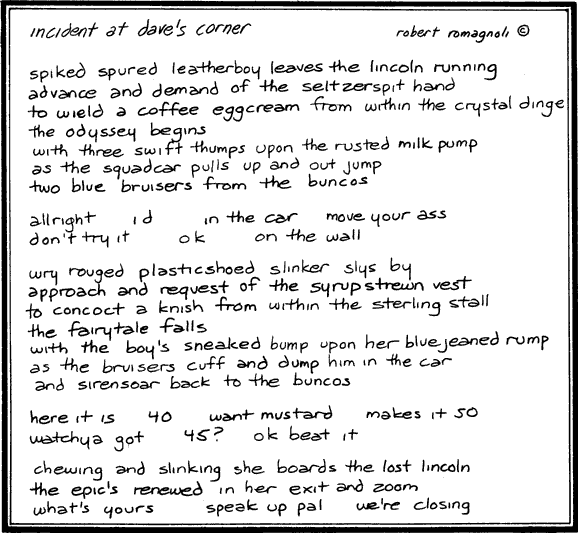 incident at dave's corner
robert romagnoli ©
spiked spured leatherboy leaves the lincoln running
advance and demand of the seltzerspit hand
to wield a coffee eggcream from within the crystal dinge
the odyssey begins
with three swift thumps upon the rusted milk pump
as the squadcar pulls up and out jump
two blue bruisers from the buncos
allright id in the car move your ass
don't try it ok on the wall
wry rouged plasticshoed slinker slys by
approach and request of the syrupstrewn vest
to concoct a knish from within the sterling stall
the fairytale falls
with the boy's sneaked bump upon her bluejeaned rump
as the bruisers cuff and dump him in the car
and sirensoar back to the buncos
here it is 40 want mustard makes it 50
watchya got 45? ok beat it
chewing and slinking she boards the lost lincoln
the epic's renewed in her exit and zoom
what's yours speak up pal we're closing